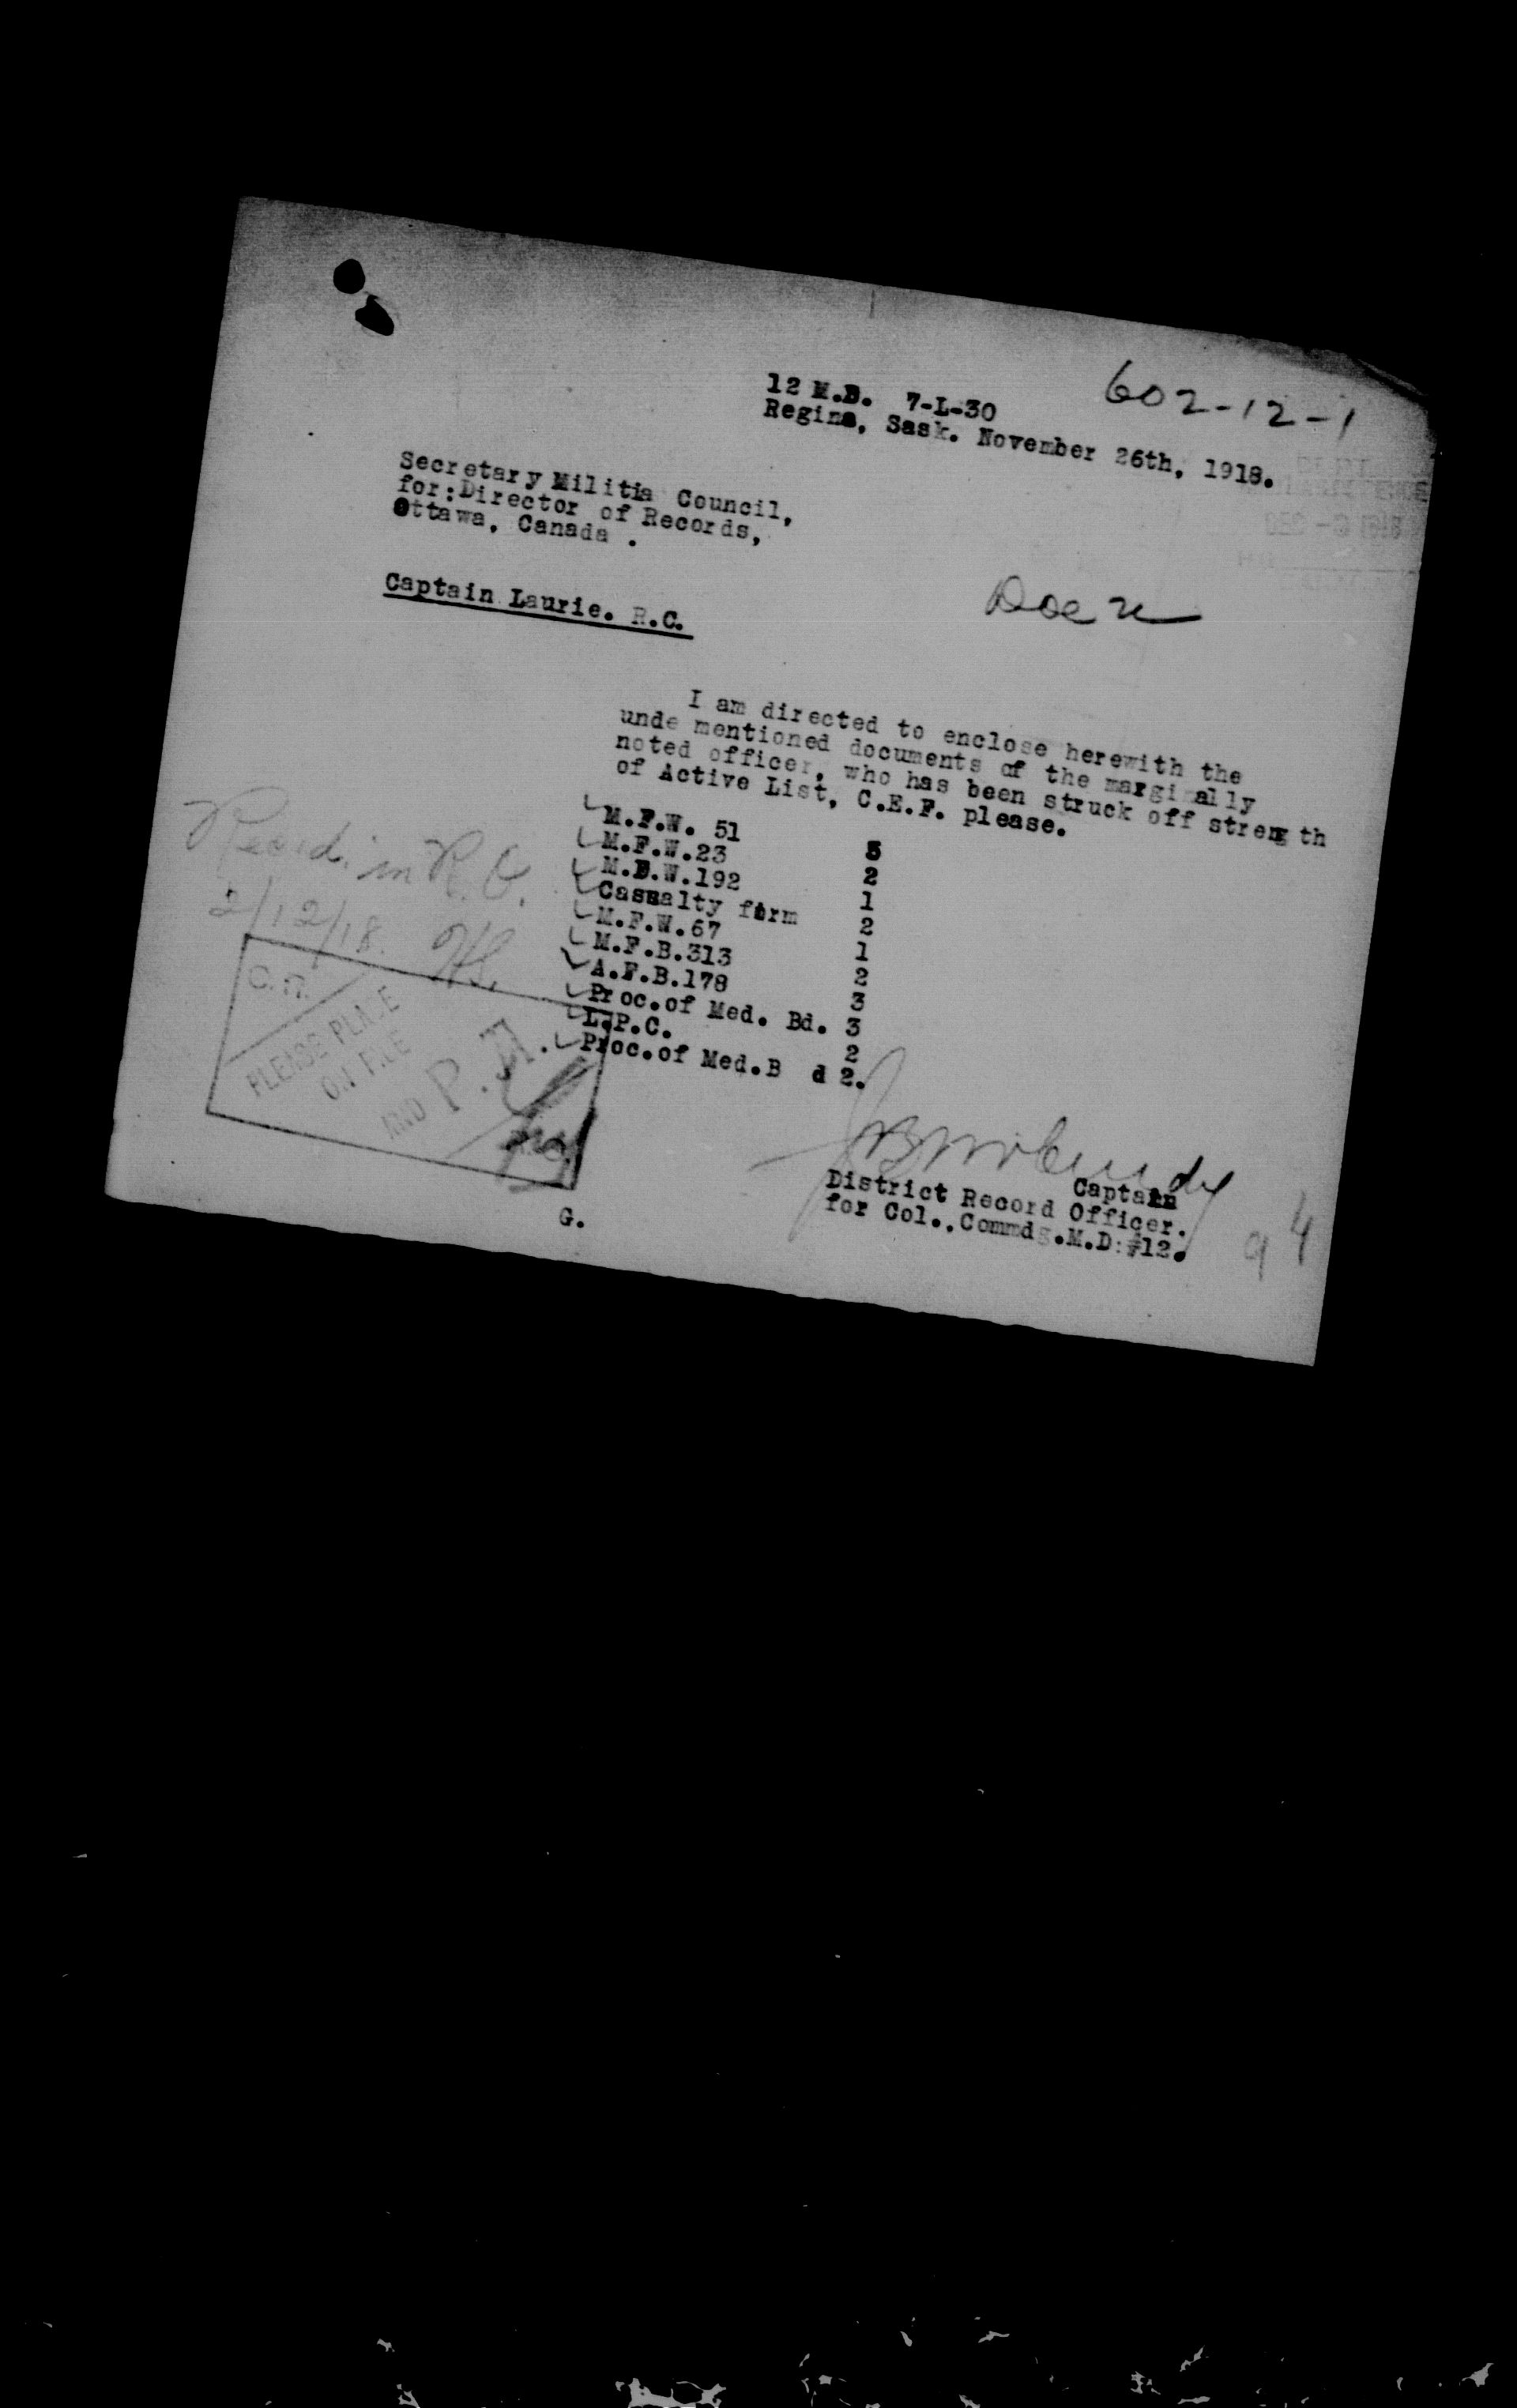 602-12-1
12 M.D. 7-L-30
Regina, Sask. November 26th, 1918.
DEC -3 1918
Secretary Militia Council,
for:Director of Records,
Ottawa, Canada .
Captain Laurie. R.C.
I am directed to enclose herewith the
unde mentioned documents of the marginally
noted officer, who has been struck off streng th
of Active List, C.E.F. please.
M.F.W. 51 3
M.F.W.23 2
M.D.W.192 1
Casualty form 2
M.F.W.67 1
M.F.B.313 2
A.F.B.178 3
Proc.of Med. Bd. 3
L.P.C. 2
Proc.of Med.B d 2.
Recd. in R.O.
2/12/18.
C.R.
PLEASE PLACE
ON FILE
AND P.A.
Captain
District Record Officer.
for Col., Commdg.M.D:#12.
G.
94